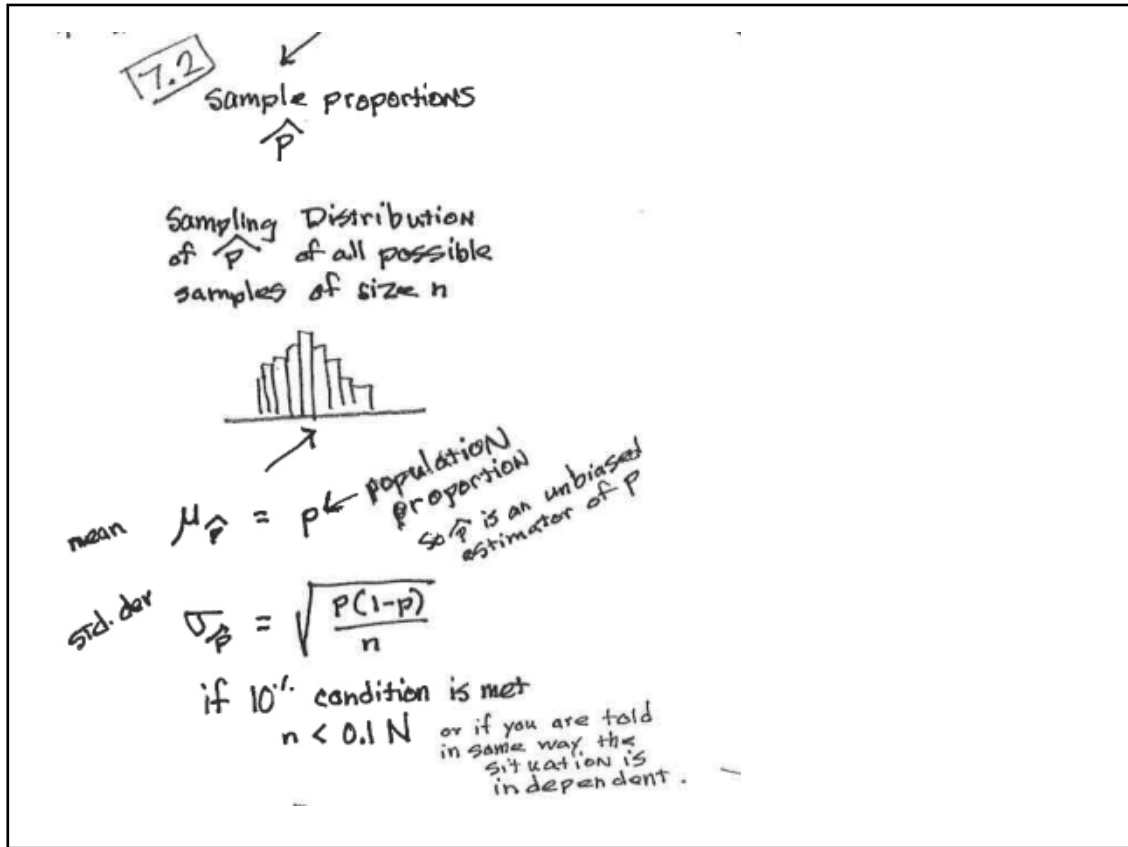 7.2
Sample proportions
p̂
Sampling Distribution
of p̂ of all possible
samples of size n
mean μp̂ = p ← population
proportion
so p̂ is an unbiased
estimator of p
std. dev σp̂ = √(p(1-p)/n)
if 10% condition is met
n < 0.1 N or if you are told
in some way the
situation is
independent.